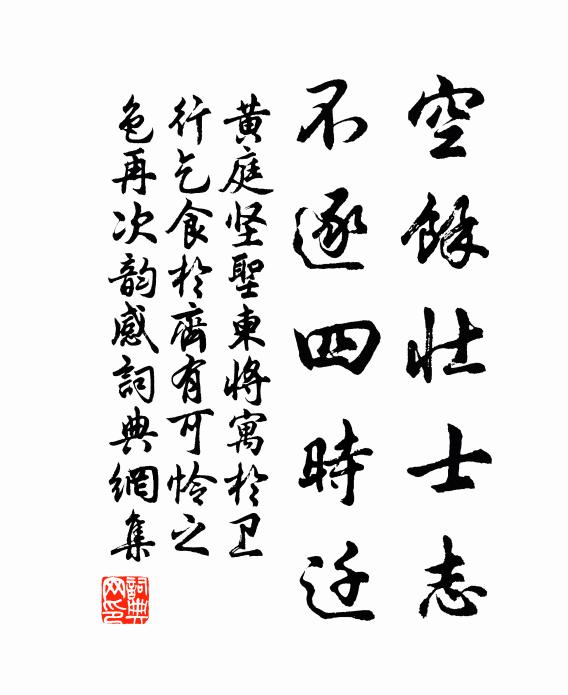 空餘壮士志
不逐四時迁
黄庭坚聖東将寓於卫
行乞食於齊有可怜之
色再次韵感詞典網集
詞典
网印